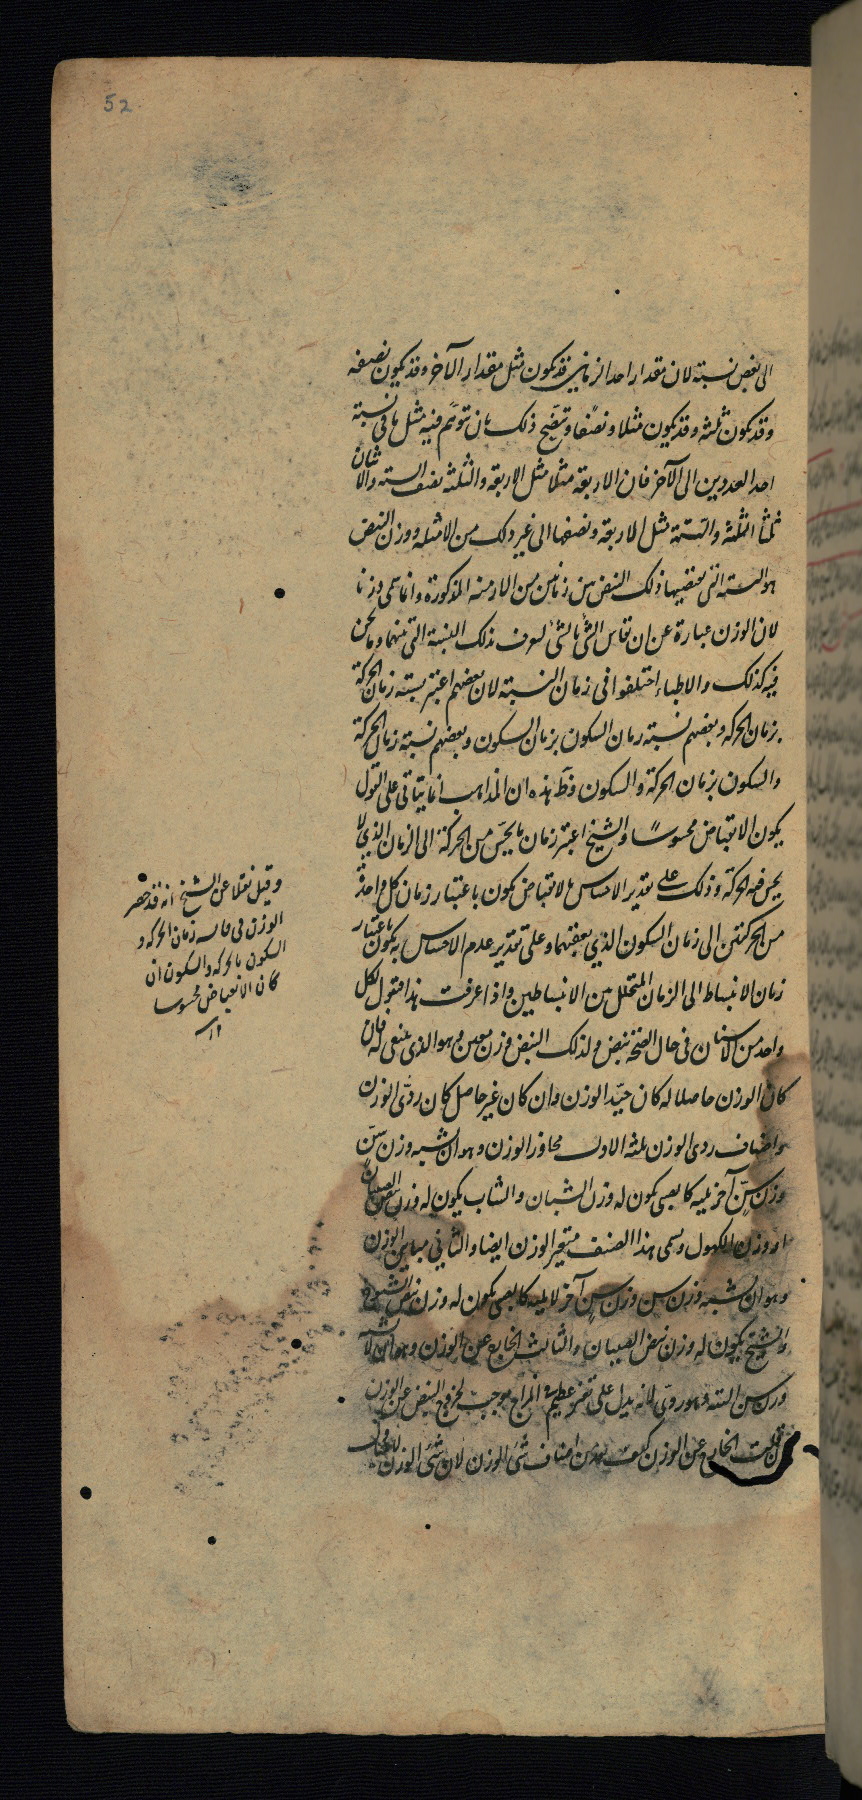 52
الى بعض نسبة لان مقدار احد الزمانين قد يكون مثل مقدار الآخر وقد يكون نصفه
وقد يكون ثلثه وقد يكون مثلا ونصفا وتتضح ذلك بان تتوهم فيه مثل ما في نسبة
احد العددين الى الآخر فان الاربعة مثلا مثل الاربعة والثلثة نصف الستة والاثنان
ثلثا الثلثة والستة مثل الاربعة ونصفها الى غير ذلك من الامثلة ووزن النبض
هو النسبة التى يقتضيها ذلك النبض بين زمانين من الازمنة المذكورة وانما سمى وزنا
لان الوزن عبارة عن ان تقاس الشئ بالشئ لتعرف بذلك النسبة التى بينهما وما نحن
فيه كذلك والاطباء اختلفوا فى زمان النسبة لان بعضهم اعتبر نسبة زمان الحركة
بزمان الحركة وبعضهم نسبة زمان السكون بزمان السكون وبعضهم نسبة زمان الحركة
والسكون بزمان الحركة والسكون وظ هذه ان المذاهب انما يتاتى على القول
بكون الانقباض محسوسا والشيخ اعتبر زمان ما يحس من الحركة الى الزمان الذي لا
يحس فيه الحركة وذلك على تقدير الاحساس بالانقباض يكون باعتبار زمان كل واحدة
من الحركتين الى زمان السكون الذي يعقبهما وعلى تقدير عدم الاحساس به يكون باعتبار
زمان الانبساط الى الزمان المتخلل بين الانبساطين واذا عرفت هذا فنقول لكل
واحد من الاسنان فى حال الصحة نبض ولذلك النبض وزن معين وهو الذى ينبغى له فان
كان الوزن حاصلا له كان جيد الوزن وان كان غير حاصل كان ردى الوزن
واصناف ردى الوزن ثلثة الاول مجاوز الوزن وهو ان يشبه وزن سن
وزن سن آخر يليه كالصبى يكون له وزن الشبان والشاب يكون له وزن نبض الصبيان
او وزن الكهول ويسمى هذا الصنف متغير الوزن ايضا والثانى مباين الوزن
وهو ان يشبه وزن سن وزن سن آخر لا يليه كالصبى يكون له وزن نبض الشيوخ
والشيخ يكون له وزن نبض الصبيان والثالث الخارج عن الوزن وهو ان لا يشبه
وزن سن البتة وهو ردى لانه يدل على تغير عظيم فى المزاج موجب لخروج النبض عن الوزن
فان قلت الخارج عن الوزن كيف يعد من اصناف سئ الوزن لان سئ الوزن
وقيل نقلا عن الشيخ انه قد حصر
الوزن فى زمان الحركة و
السكون بالحركة والسكون ان
كان الانقباض محسوسا